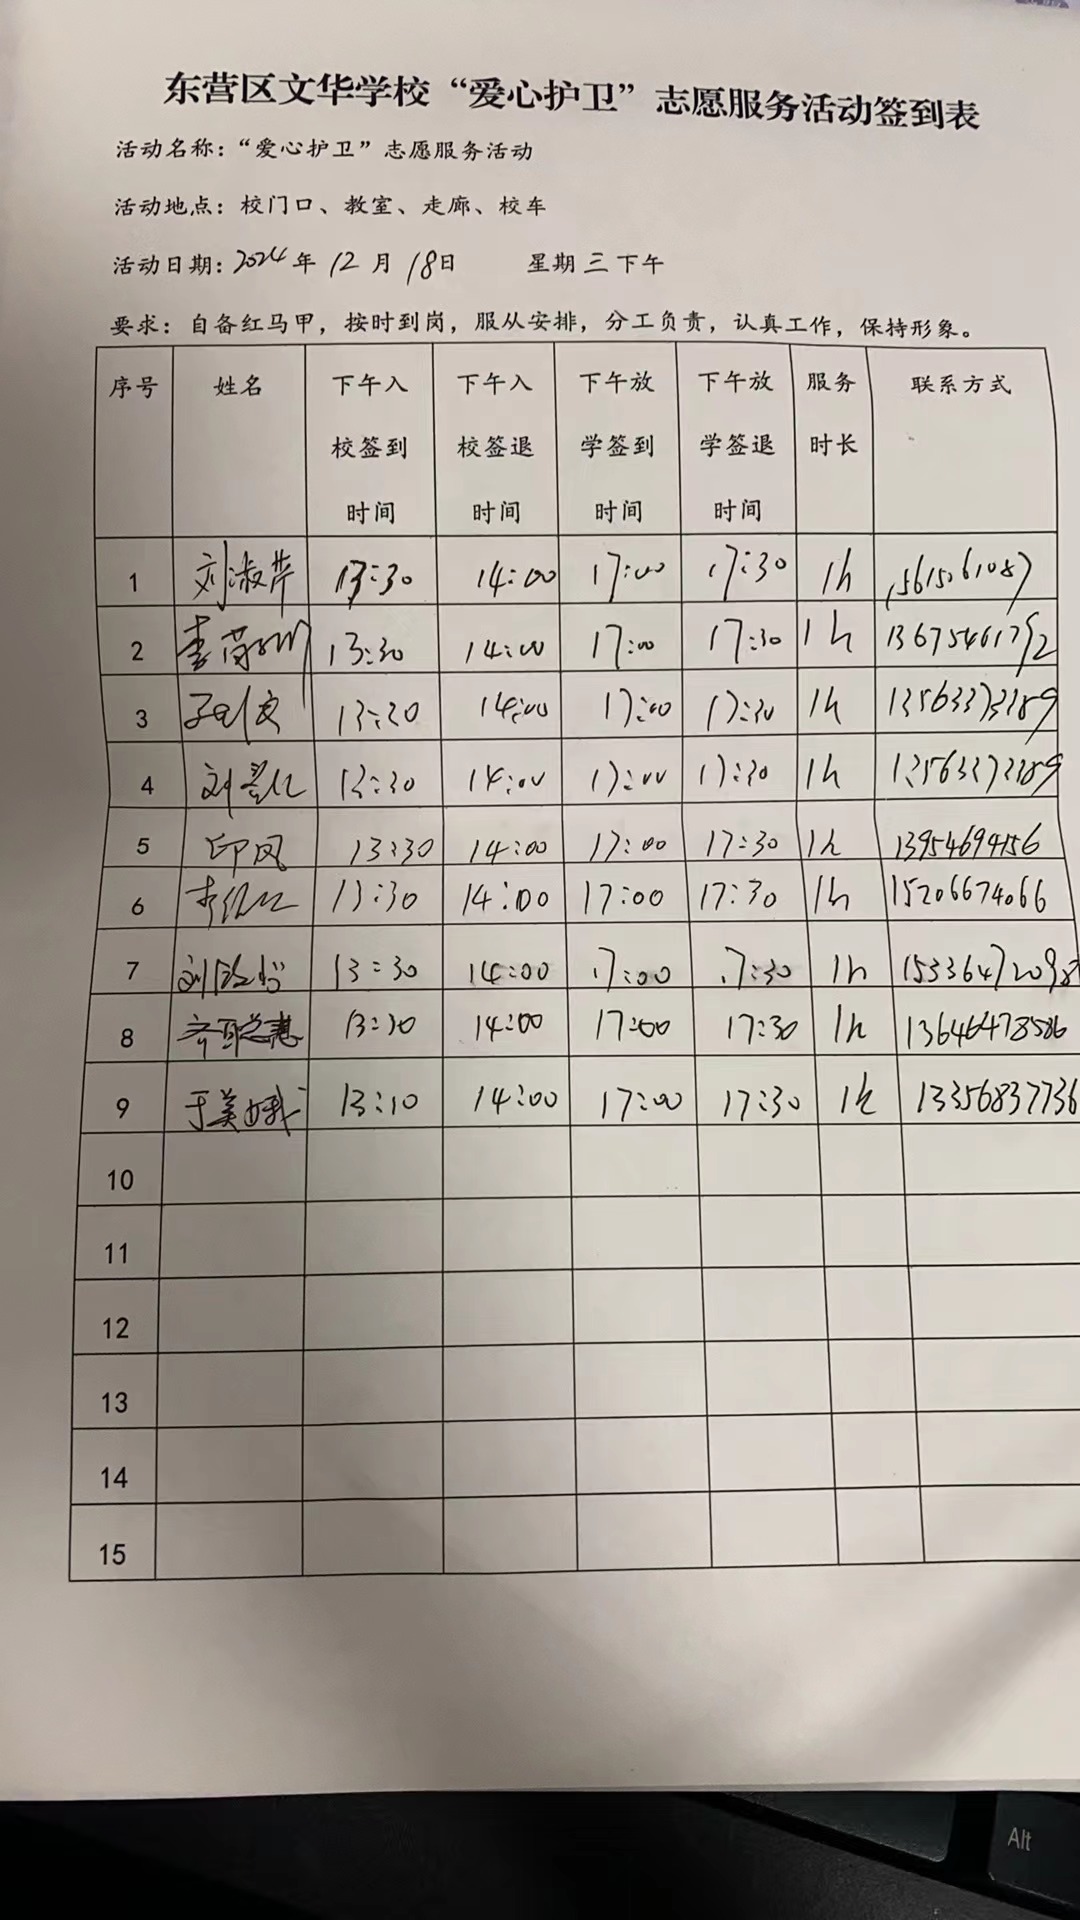 东营区文华学校“爱心护卫”志愿服务活动签到表
活动名称：“爱心护卫”志愿服务活动
活动地点：校门口、教室、走廊、校车
活动日期：2024年12月18日 星期三下午
要求：自备红马甲，按时到岗，服从安排，分工负责，认真工作，保持形象。
序号 姓名 下午入校签到时间 下午入校签退时间 下午放学签到时间 下午放学签退时间 服务时长 联系方式
1 刘淑芹 13:30 14:00 17:00 17:30 1h 15615061087
2 13:30 14:00 17:00 17:30 1h 13675461792
3 13:30 14:00 17:00 17:30 1h 13563373389
4 13:30 14:00 17:00 17:30 1h 13563373389
5 印风 13:30 14:00 17:00 17:30 1h 13954694156
6 13:30 14:00 17:00 17:30 1h 15206674066
7 13:30 14:00 17:00 17:30 1h
8 13:30 14:00 17:00 17:30 1h 13646478586
9 于美娥 13:10 14:00 17:00 17:30 1h 13356837736
10
11
12
13
14
15
Alt